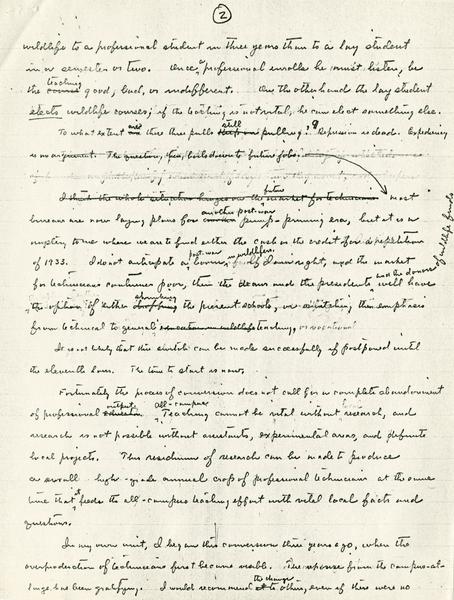 2
wildlife to a professional student in three years than to a lay student
in a semester or two. Once a professional enrolls he must listen, be
the course teaching good, bad, or indifferent. On the other hand the lay student
elects wildlife courses; if the teaching is not vital, he can elect something else.
To what extent are these three pulls still pulling? Depression is dead. Expediency
is no argument. The question, then, boils down to future jobs.
I think the whole situation hinges on the future market for technicians most
bureaus are now laying plans for another post-war pump-priming era, but it is a
mystery to me where we are to find either the cash or the credit for a repetition
of 1933. I do not anticipate a post-war boom in wildlifers. If I am right, and the market
for technicians continues poor, then the deans and the presidents and the donors of wildlife funds will have
the option of either shrinking the present schools, or switching their emphasis
from technical to general teaching, or vocational
It is not likely that this switch can be made successfully if postponed until
the eleventh hour. The time to start is now.
Fortunately the process of conversion does not call for a complete abandonment
of professional output. All-campus teaching cannot be vital without research, and
research is not possible without assistants, experimental areas, and definite
local projects. This residuum of research can be made to produce
a small high-grade annual crop of professional technicians at the same
time that it feeds the all-campus teaching effort with vital local facts and
questions.
In my own unit, I began this conversion three years ago, when the
overproduction of technicians first became visible. The response from the campus-at-
large has been gratifying. I would recommend the change to others, even if there were no